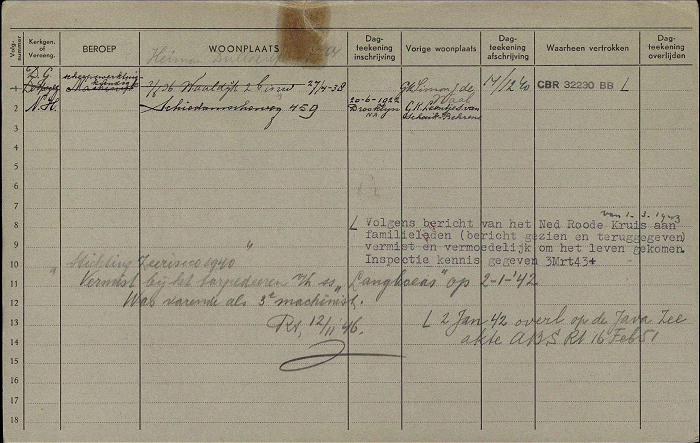 Volg-nummer | Kerkgen. of Vereeng. | BEROEP | WOONPLAATS | Dag-teekening inschrijving | Vorige woonplaats | Dag-teekening afschrijving | Waarheen vertrokken | Dag-teekening overlijden
D.G.
1 Machinist 7/36 Waaldijk 2 27/4-38 14/12 40 CBR 32230 BB L
2 N.H. Schiedamscheweg 459 20-6-1922 Brooklyn N.A. G.K.
3
4
5
6
7
van 1-3-1943
8 L Volgens bericht van het Ned Roode Kruis aan
familieleden (bericht gezien en teruggegeven)
9 vermist en vermoedelijk om het leven gekomen.
Inspectie kennis gegeven 3Mrt43+
10 " Stichting Zeerisico 1940 "
11 Vermist bij het torpedeeren v/h ss „Langkoeas" op 2-1-'42
12 Was varende als 3e machinist.
13 Rt, 12/11 '46. L 2 Jan 42 overl op de Java Zee
14 akte ABS Rt 16 Feb 51
15
16
17
18